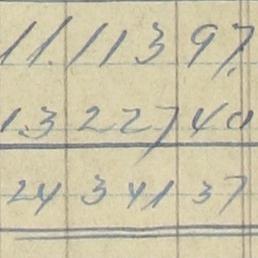 11.113 97.
13 227 40
24 341 37